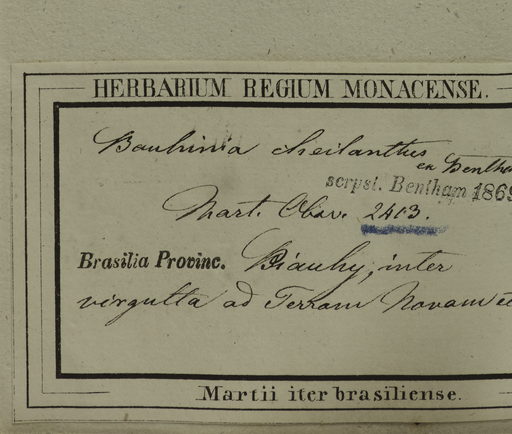 HERBARIUM REGIUM MONACENSE.
Bauhinia cheilanthus
ex Benth
scrpsi. Bentham 1869
Mart. Obsv. 2413.
Brasilia Provinc. Piauhy, inter
virgulta ad Terram Novam et
Martii iter brasiliense.